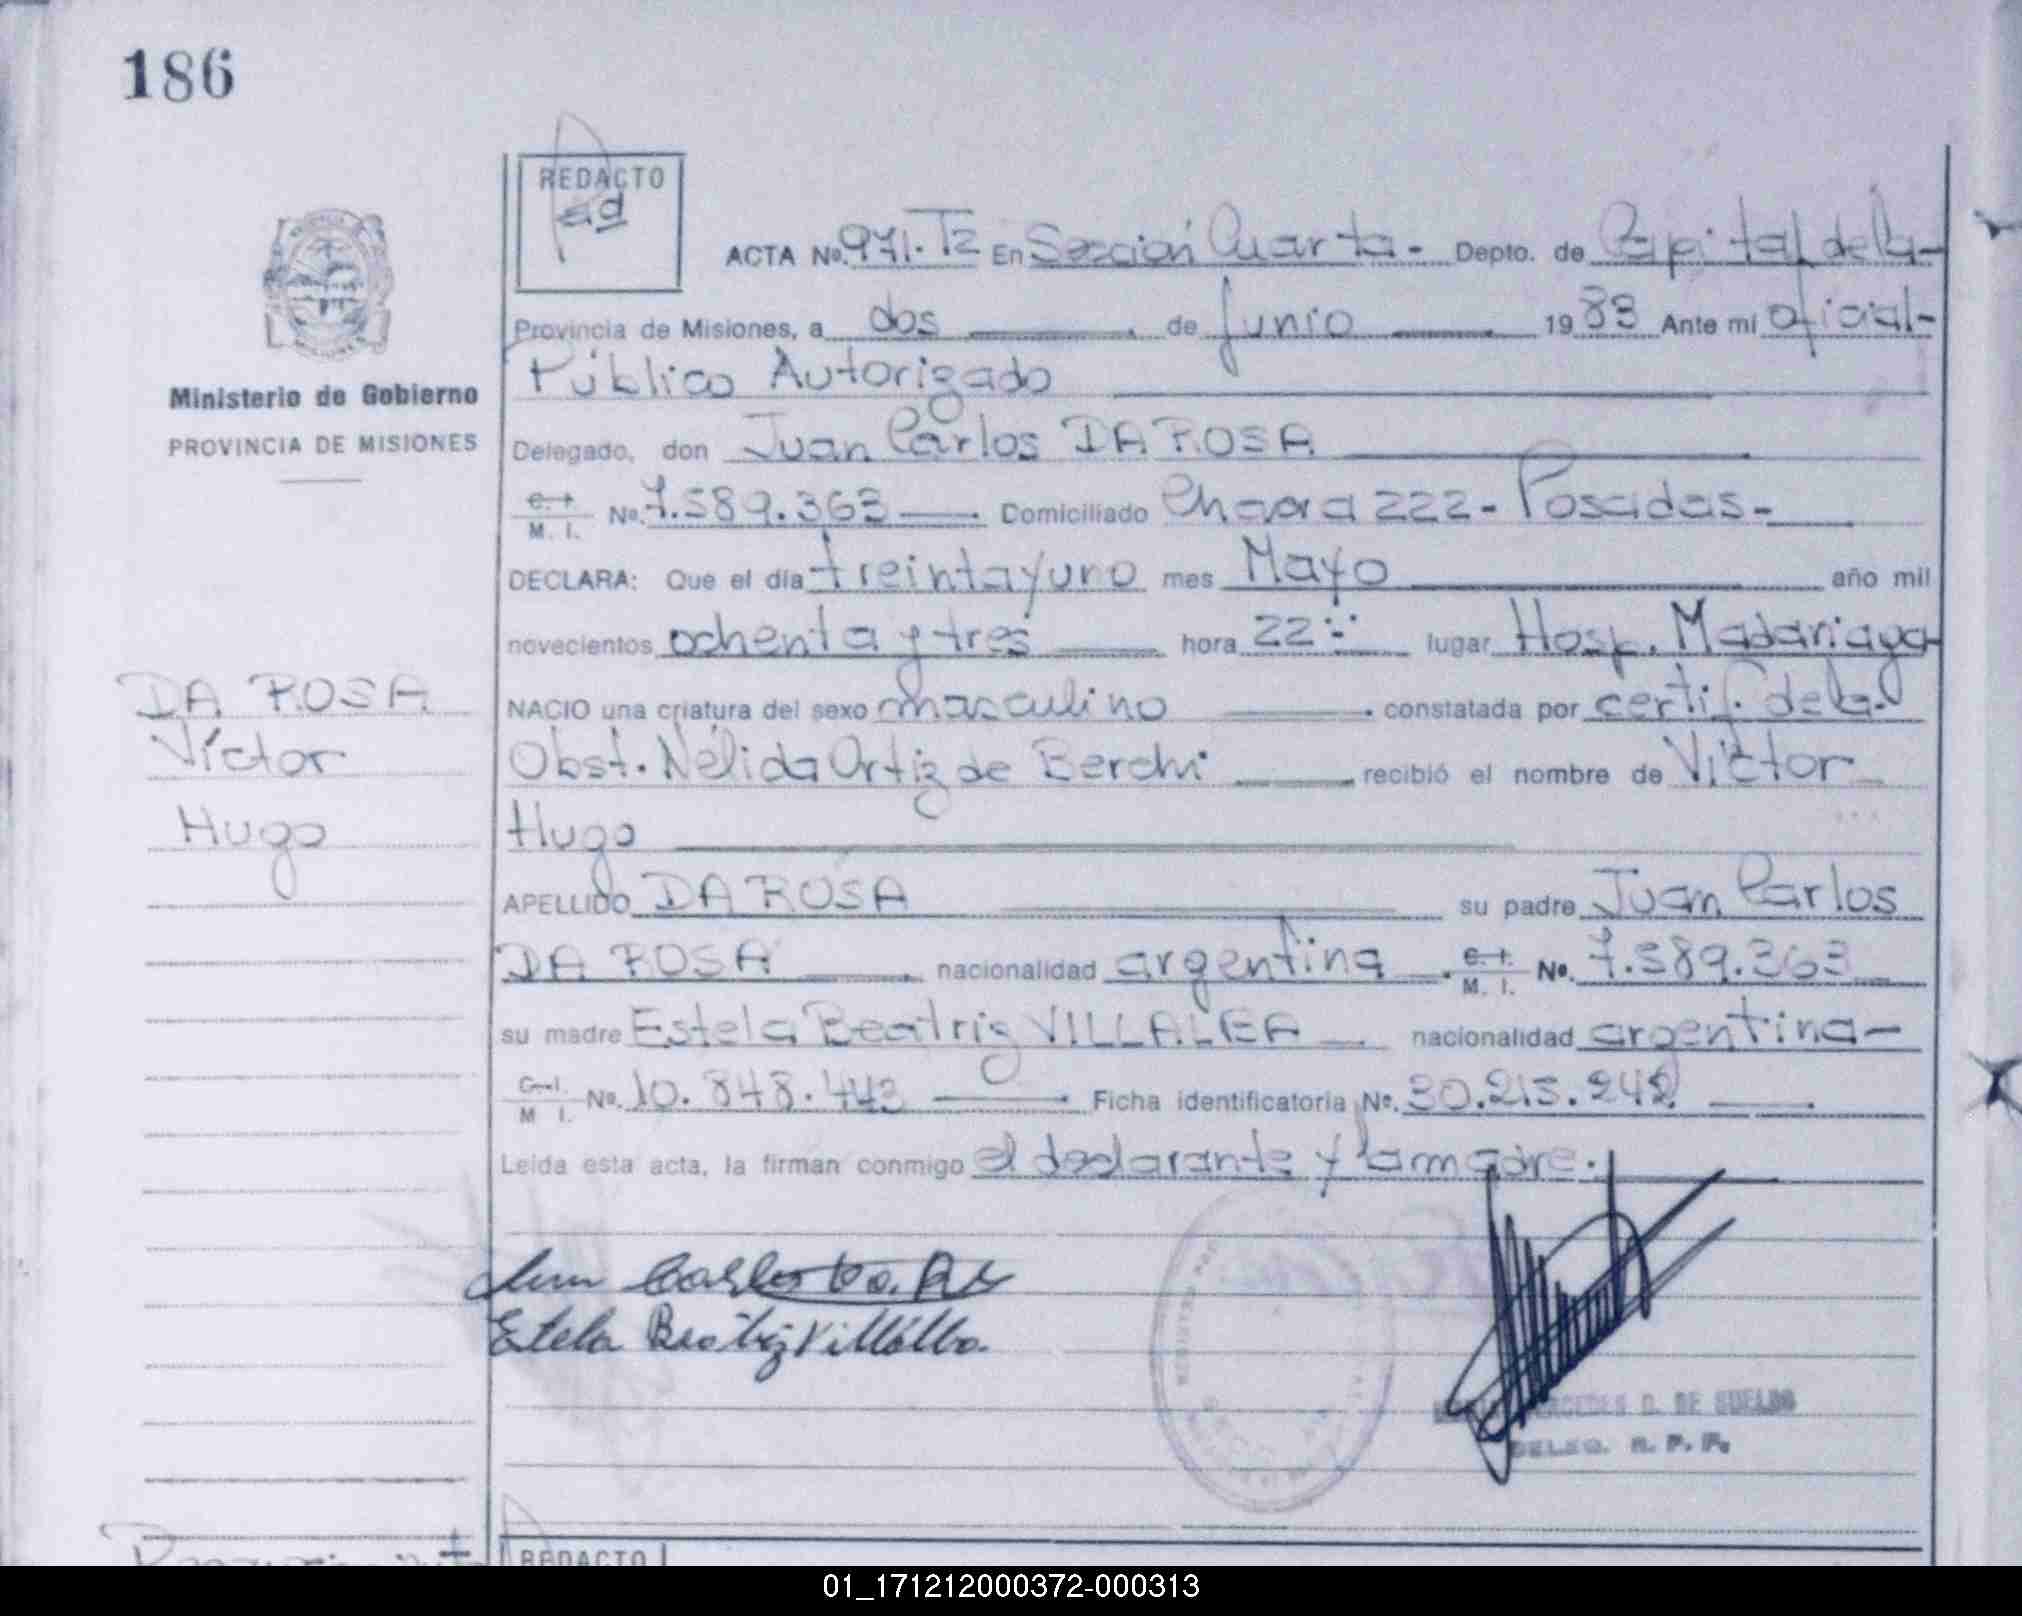 186
REDACTO
ACTA No. 971. T2 En Sección Cuarta - Depto. de Capital de la -
Provincia de Misiones, a dos de Junio 1983 Ante mí oficial -
Público Autorizado
Ministerio de Gobierno
PROVINCIA DE MISIONES
Delegado, don Juan Carlos DA ROSA
C. I. M. I. No. 7.589.363 Domiciliado Chacra 222 - Posadas -
DECLARA: Que el día treintayuno mes Mayo año mil
novecientos ochenta y tres hora 22 lugar Hosp. Madariaga
DA ROSA
Víctor
Hugo
NACIO una criatura del sexo masculino constatada por certif. de la
Obst. Nélida Ortiz de Berchi recibió el nombre de Víctor
Hugo
APELLIDO DA ROSA su padre Juan Carlos
DA ROSA nacionalidad argentina C. I. M. I. No. 7.589.363
su madre Estela Beatriz VILLALBA nacionalidad argentina -
C. I. M. I. No. 10.848.443 Ficha identificatoria No. 30.213.242
Leída esta acta, la firman conmigo el declarante y la madre.
Juan Carlos
Estela Beatriz Villalba.
D. DE SUELDO
DELEG. R. P. P.
REDACTO
01_171212000372-000313